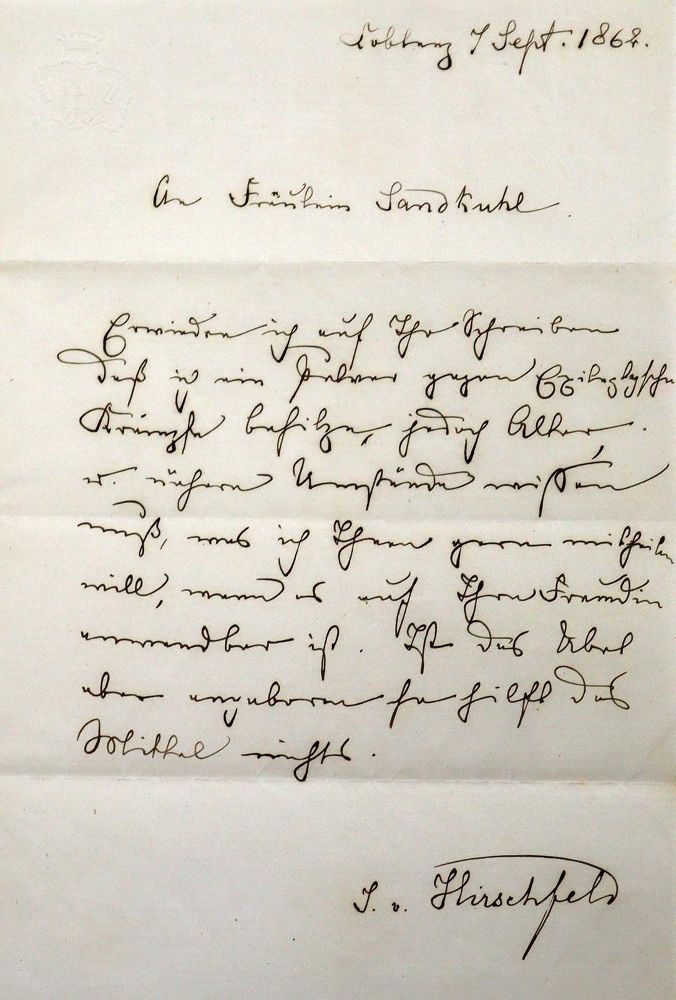 Coblenz 7 Sept. 1862.
An Fräulein Sandkuhl.
Erwiedere ich auf Ihr Schreiben
daß ich ein Pulver gegen Epileptysche
Krämpfe besitze, jedoch Alter,
u. nähere Umstände wissen
muß, was ich Ihnen gern mittheilen
will, wenn es auf Ihre Freundin
anwendbar ist. Ist das Übel
aber angeboren so hilft das
Mittel nichts.
J. v. Hirschfeld